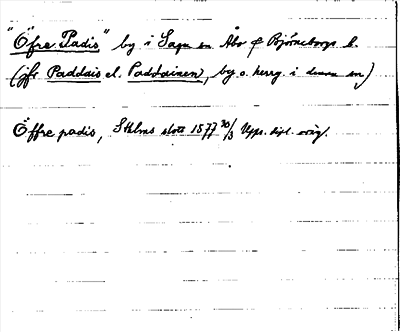 "Öfre Padis" by i Sagu sn Åbo o Björneborgs l.
(jfr Paddais el. Paddainen, by o. herrg. i denna sn)
Öffre padis, Sthlms slott 1577 30/3 Upps. dipl. orig.